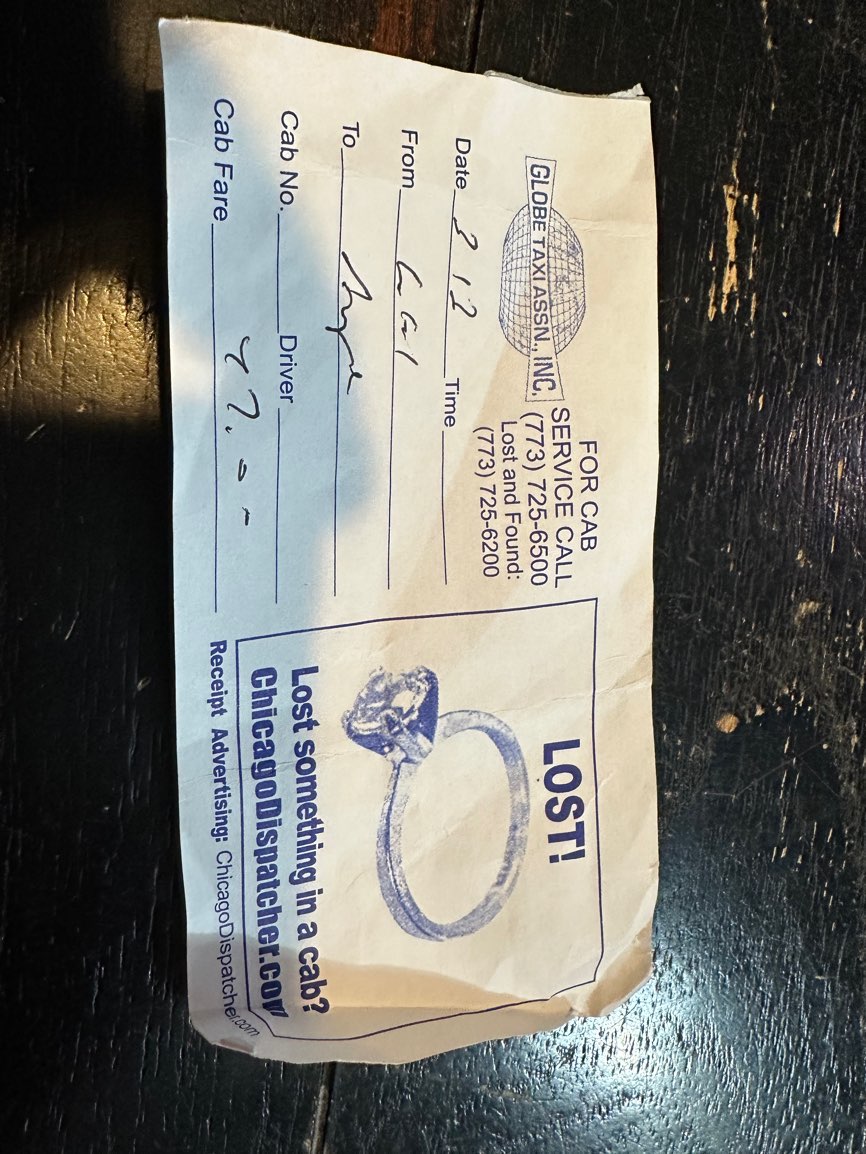 GLOBE TAXI ASSN., INC.
FOR CAB
SERVICE CALL
(773) 725-6500
Lost and Found:
(773) 725-6200
Date 3 12 Time
From
To
Cab No. Driver
Cab Fare
LOST!
Lost something in a cab?
ChicagoDispatcher.com
Receipt Advertising: ChicagoDispatcher.com